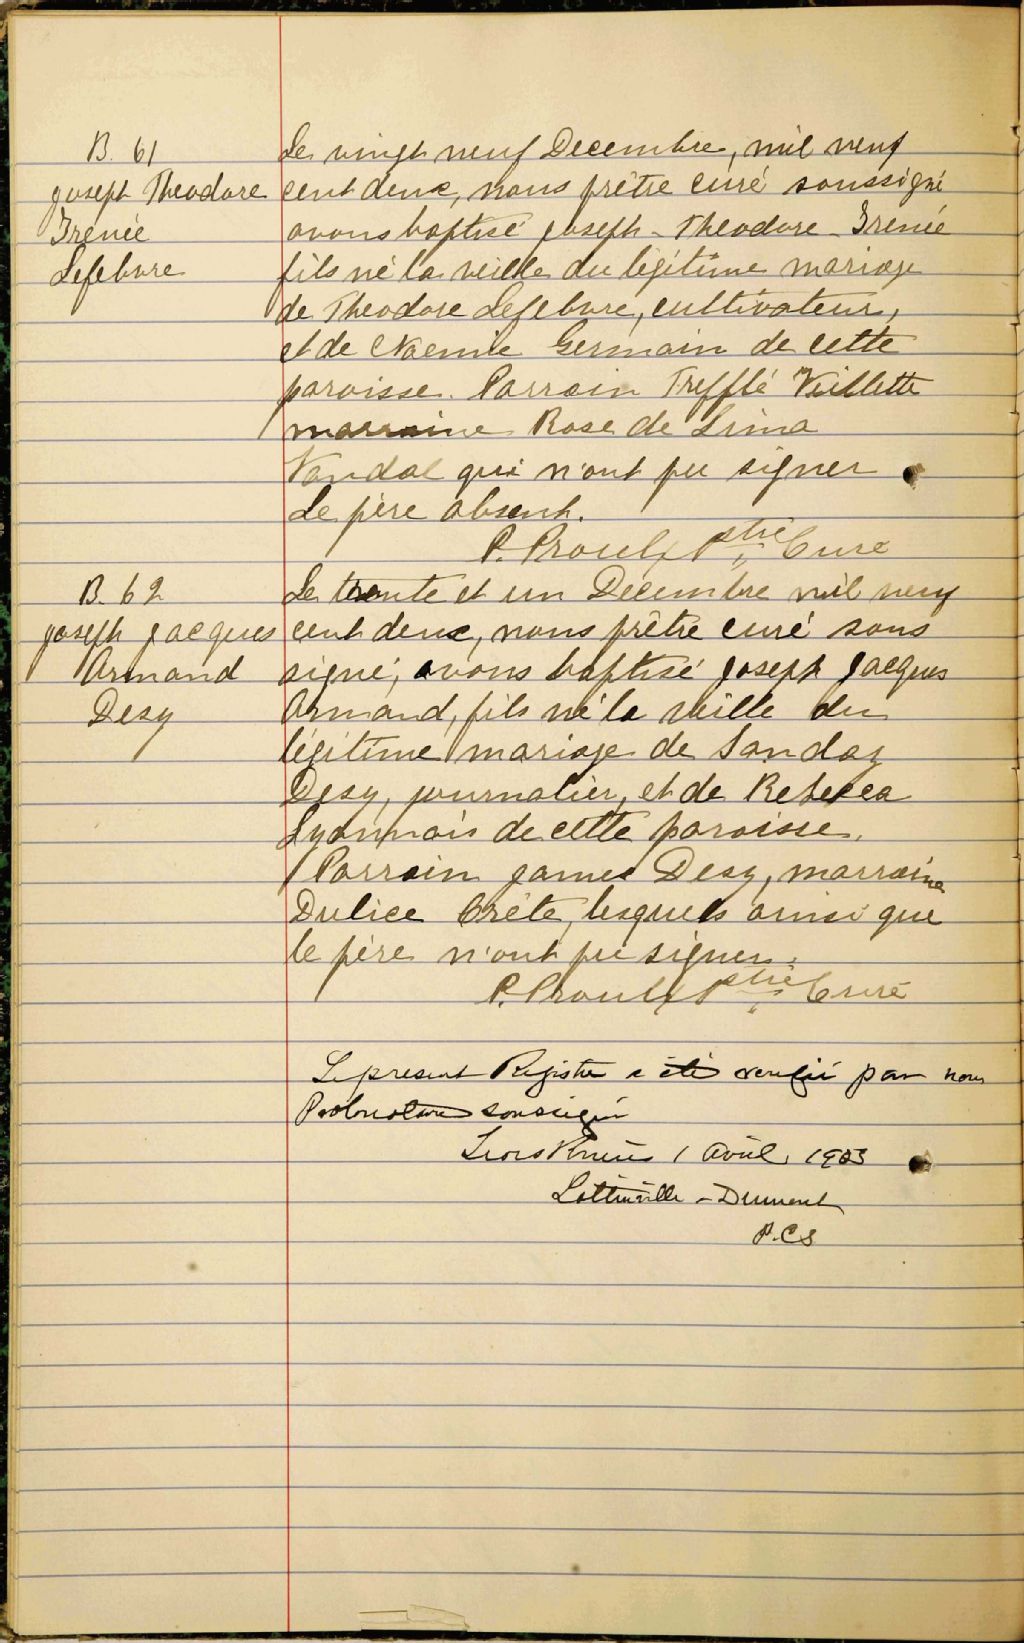 B. 61
Joseph Theodore
Irénée
Lefebvre
Le vingt neuf Decembre, mil neuf
cent deux, nous prêtre curé soussigné
avons baptisé Joseph - Theodore - Irenée
fils né la veille du légitime mariage
de Theodore Lefebvre, cultivateur,
et de Noemie Germain de cette
paroisse. Parrain Trefflé Veillette
marraine Rose de Lima
Vandal qui n'ont pu signer
Le père absent.
P. Proulx Ptre Curé
B. 62
Joseph Jacques
Armand
Desy
Le trente et un Décembre mil neuf
cent deux, nous prêtre curé sous
signé, avons baptisé Joseph Jacques
Armand, fils né la veille du
légitime mariage de Sandaz
Desy, journalier, et de Rebecca
Lyonnais de cette paroisse.
Parrain James Desy, marraine
Dulice Crête, lesquels ainsi que
le père n'ont pu signer.
P. Proulx Ptre Curé
Le present Registre a été verifié par nous
Protonotaire soussigné
Trois Rivières 1 Avril 1903
Lottinville - Dumont
P.C.S